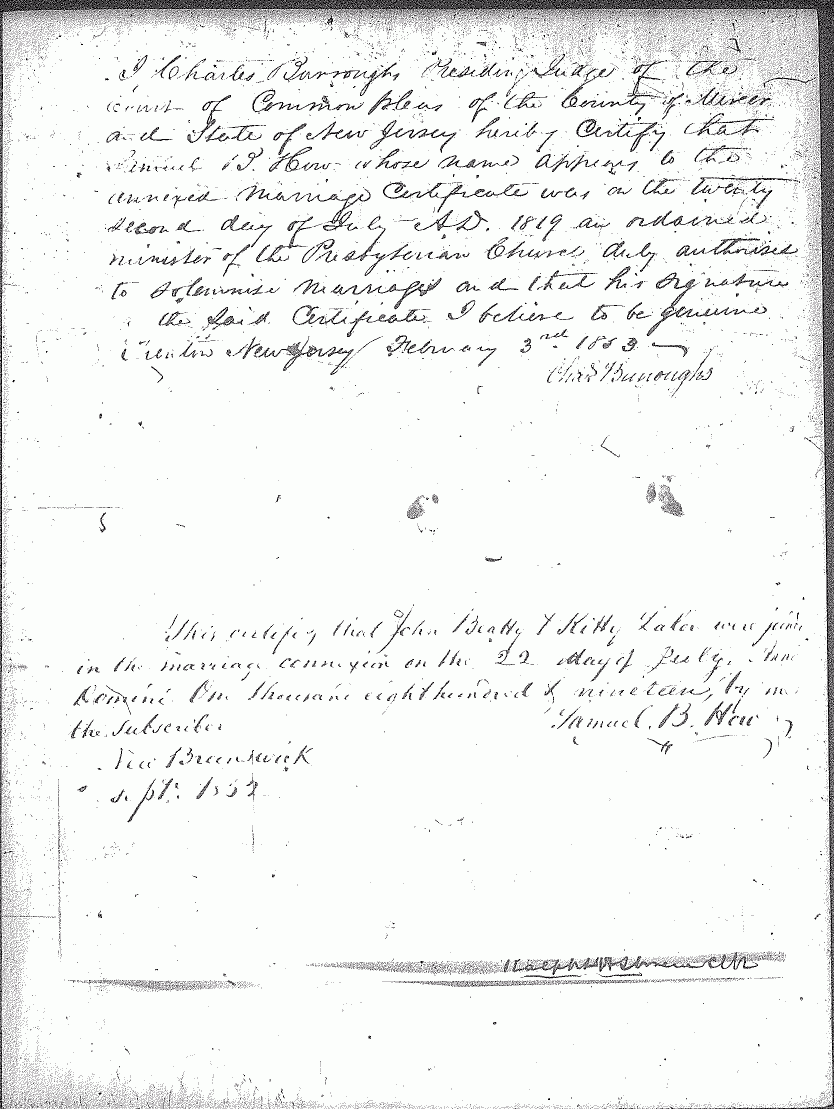 I Charles Burroughs Presiding Judge of the
Court of Common pleas of the County of Mercer
and State of New Jersey hereby Certify that
Samuel B. How whose name appears to the
annexed Marriage Certificate was on the twenty
second day of July A.D. 1819 an ordained
minister of the Presbyterian Church duly authorised
to solemnise marriages and that his signature
the said Certificate I believe to be genuine
Trenton New Jersey February 3rd 1853
Chas Burroughs
This certifies that John Beatty & Kitty Lalor were joined
in the marriage connexion on the 22 day of July, Anno
Domini One thousand eight hundred & nineteen, by me
the subscriber Samuel. B. How
New Brunswick
Sept. 1852